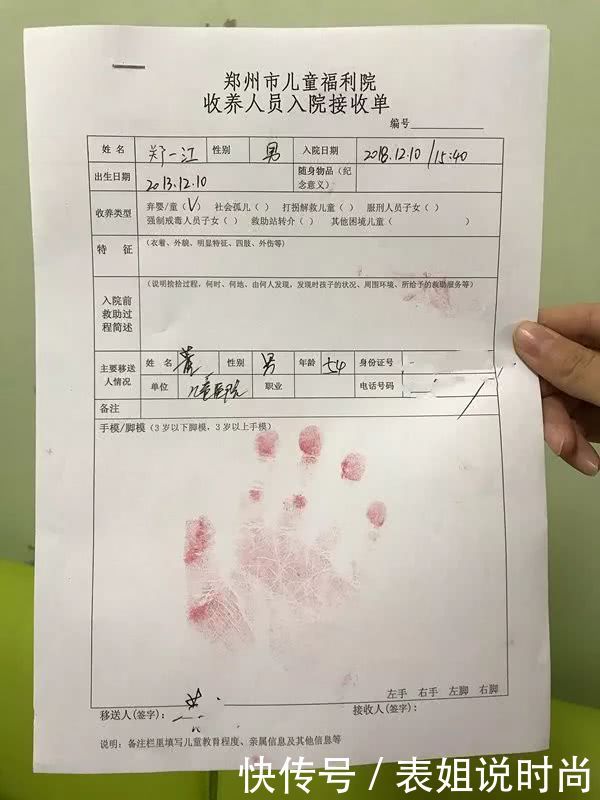 郑州市儿童福利院
收养人员入院接收单
编号
姓名 郑一江 性别 男 入院日期 2018.12.10/15:40
出生日期 2013.12.10 随身物品(纪念意义)
收养类型 弃婴/童(√) 社会孤儿( ) 打拐解救儿童( ) 服刑人员子女( )
强制戒毒人员子女( ) 救助站转介( ) 其他困境儿童( )
特征 (衣着、外貌、明显特征、四肢、外伤等)
入院前救助过程简述 (说明捡拾过程,何时、何地、由何人发现,发现时孩子的状况、周围环境、所给予的救助服务等)
主要移送人情况 姓名 性别 男 年龄 54 身份证号
单位 儿童医院 职业 电话号码
备注
手模/脚模(3岁以下脚模、3岁以上手模)
左手 右手 左脚 右脚
移送人(签字): 接收人(签字):
说明:备注栏里填写儿童教育程度、亲属信息及其他信息等
快传号/表姐说时尚